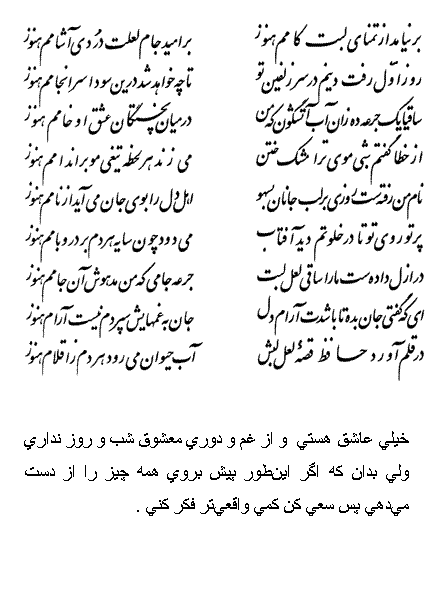 بر نیامد از تمنای لبت کامم هنوز
بر امید جام لعلت دُردی آشامم هنوز
روز اوّل رفت دینم در سر زلفین تو
تا چه خواهد شد درین سودا سرانجامم هنوز
ساقیا یک جرعه ده زان آب آتشگون که من
در میان پختگان عشق او خامم هنوز
از خطا گفتم شبی موی ترا مشک ختن
می زند هر لحظه تیغی مو بر اندامم هنوز
نام من رفته ست روزی بر لب جانان بسهو
اهل دل را بوی جان می آید از نامم هنوز
پرتو روی تو تا در خلوتم دید آفتاب
می دود چون سایه هر دم بر در و بامم هنوز
در ازل داده ست ما را ساقی لعل لبت
جرعه جامی که من مدهوش آن جامم هنوز
ای که گفتی جان بده تا باشدت آرام دل
جان به غمهایش سپردم نیست آرامم هنوز
در قلم آورد حافظ قصهٔ لعل لبش
آب حیوان می رود هر دم ز اقلامم هنوز
خيلي عاشق هستي و از غم و دوري معشوق شب و روز نداري
ولي بدان كه اگر اين‌طور پيش بروي همه چيز را از دست
مي‌دهي پس سعي كن كمي واقعي‌تر فكر كني .